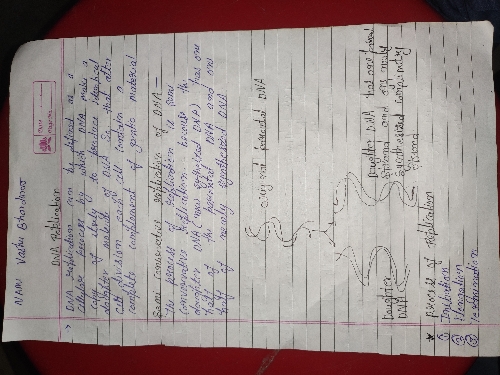 NAME Vashu Bhardwaj
DNA Replication
→ DNA replication can be defined as a
cellular process by which DNA makes a
copy of itself to produce identical
daughter molecule of DNA so that after
cell division each cell contain a
complete complement of genetic material
Semi conservative replication of DNA -
The process of replication is semi
conservative replication because the
daughter DNA (new replicated DNA) has one
half of the parental DNA and one
half of newly synthesized DNA
original parental DNA
Daughter
DNA
Daughter DNA that one parent
strand and one newly
synthesized complementary
strand
* process of Replication
① Initiation
② Elongation
③ Termination